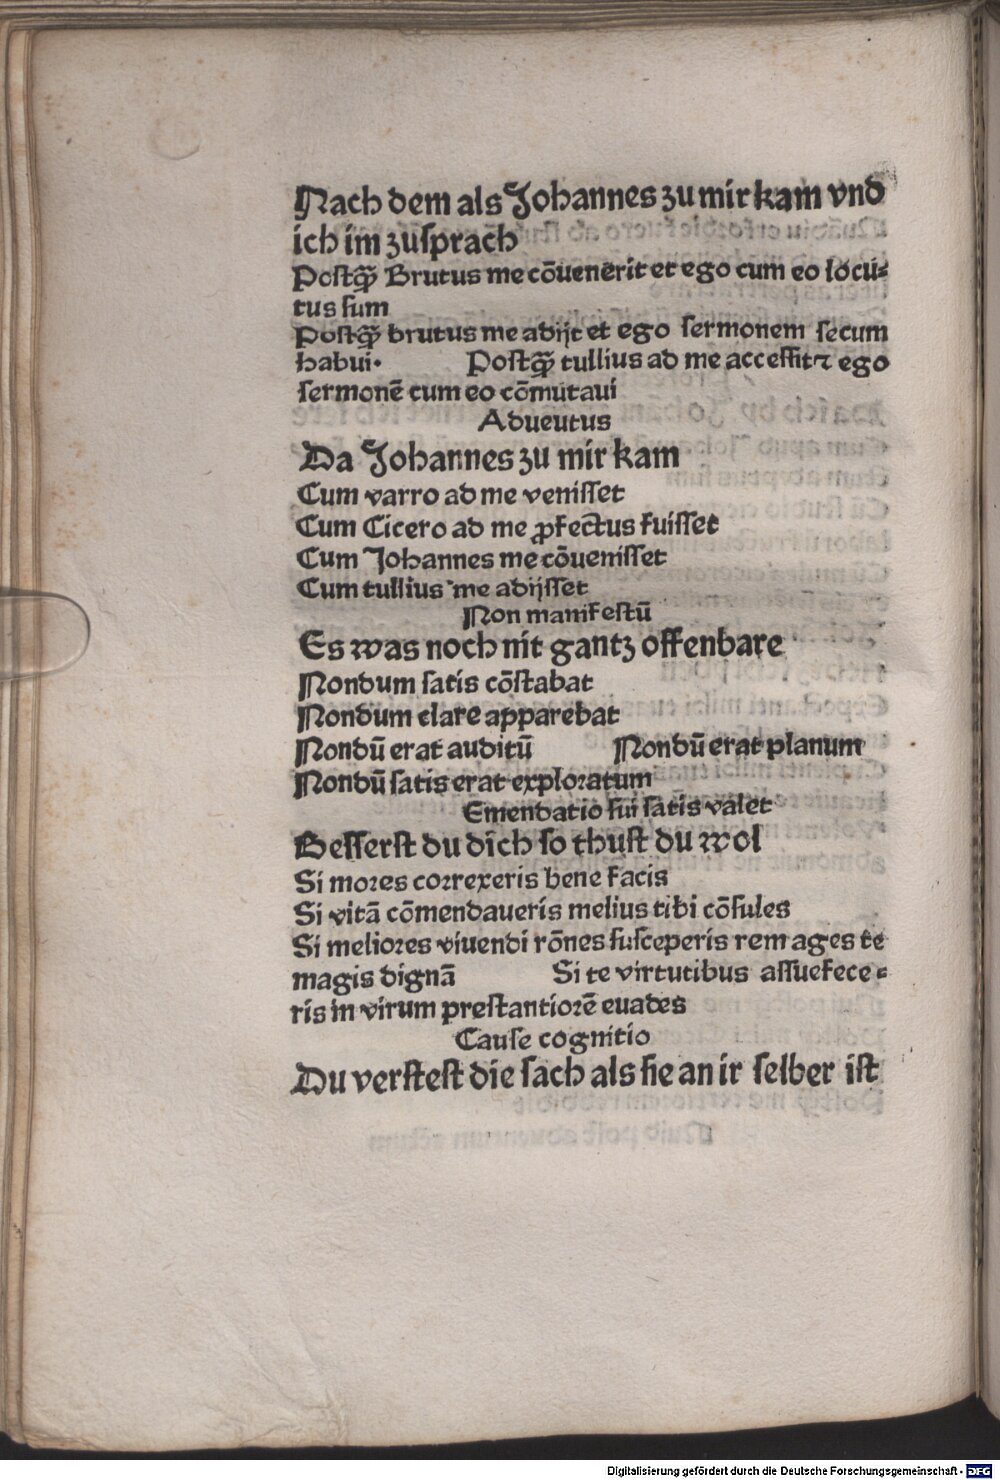 Nach dem als Johannes zu mir kam vnd
ich im zusprach
Postꝗ̄ Brutus me cōuenerit et ego cum eo locu-
tus sum
Postꝗ̄ brutus me adijt et ego sermonem secum
habui. Postꝗ̄ tullius ad me accessit ⁊ ego
sermonē cum eo cōmutaui
Adueutus
Da Johannes zu mir kam
Cum varro ad me venisset
Cum Cicero ad me ꝓfectus fuisset
Cum Johannes me cōuenisset
Cum tullius me adijsset
Non manifestū
Es was noch nit gantz offenbare
Nondum satis cōstabat
Nondum clare apparebat
Nondū erat auditū Nondū erat planum
Nondū satis erat exploratum
Emendatio sui satis valet
Besserst du dich so thust du wol
Si mores correxeris bene facis
Si vitā cōmendaueris melius tibi cōsules
Si meliores viuendi rōnes susceperis rem ages te
magis dignā Si te virtutibus assuefece-
ris in virum prestantiorē euades
Cause cognitio
Du verstest die sach als sie an ir selber ist
Digitalisierung gefördert durch die Deutsche Forschungsgemeinschaft - DFG